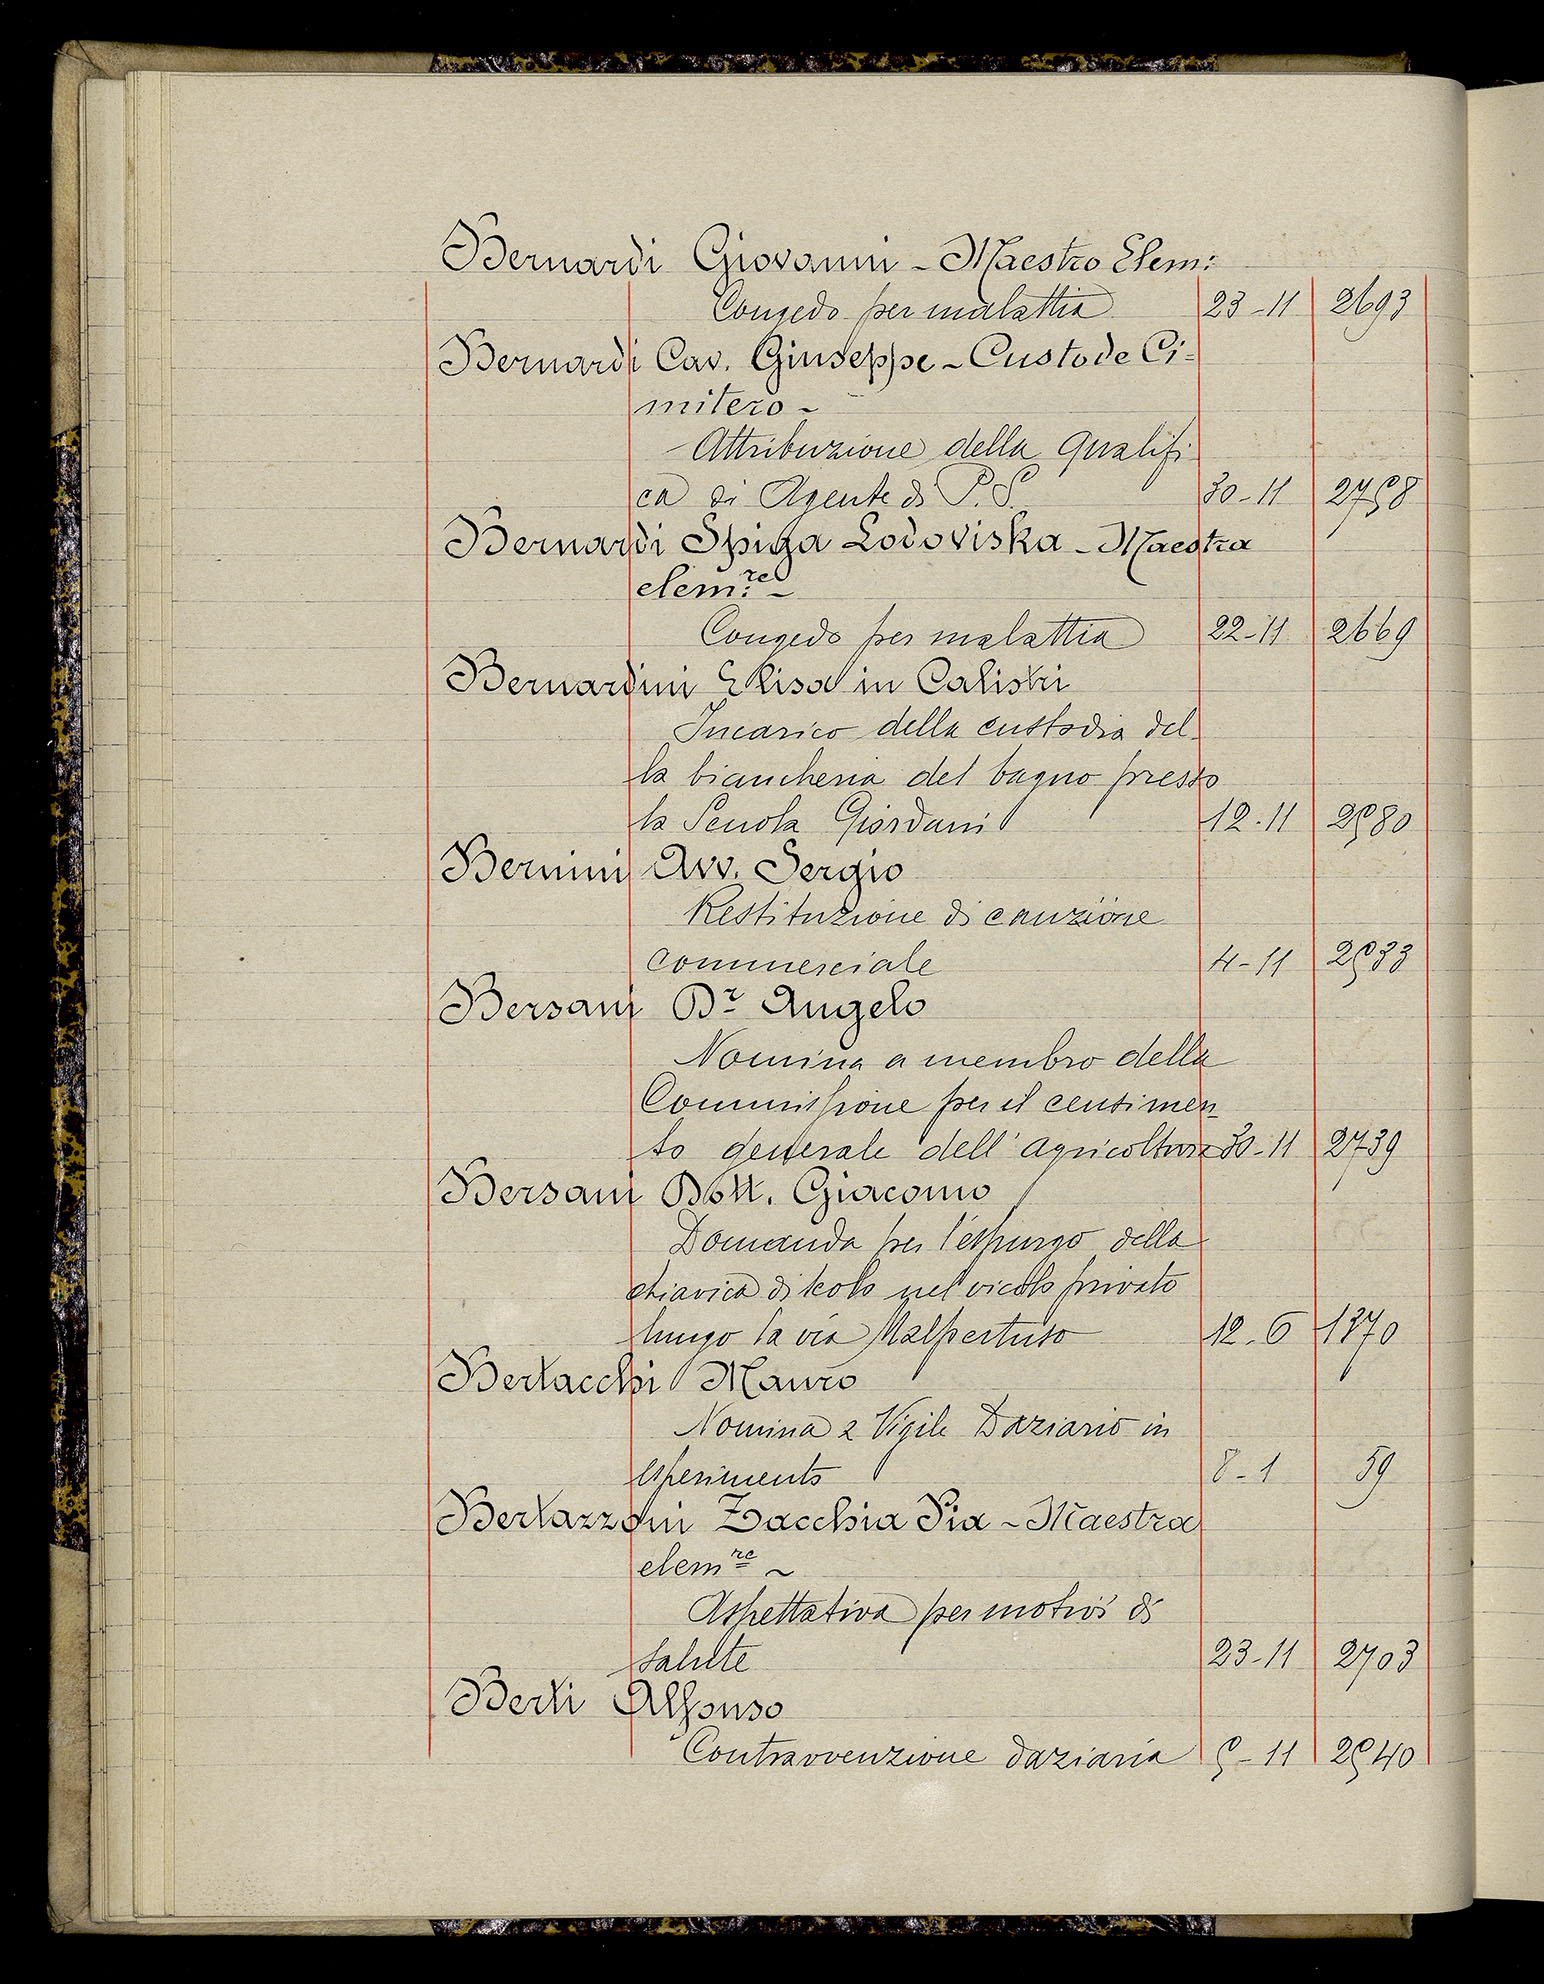 Bernardi Giovanni - Maestro Elem:
Congedo per malattia 23-11 2693
Bernardi Cav. Giuseppe - Custode Ci-
mitero -
Attribuzione della qualifi
ca di Agente di P.S. 30-11 2758
Bernardi Spiga Lodoviska - Maestra
elem:re -
Congedo per malattia 22-11 2669
Bernardini Elisa in Calistri
Incarico della custodia del-
la biancheria del bagno presso
la Scuola Giordani 12-11 2580
Bernini Avv. Sergio
Restituzione di cauzione
commerciale 4-11 2533
Bersani Dr Angelo
Nomina a membro della
Commissione per il censimen-
to generale dell'agricoltura 30-11 2739
Bersani Dott. Giacomo
Domanda per l'espurgo della
chiavica di scolo nel vicolo privato
lungo la via Malpertuso 12-6 1370
Bertacchi Mauro
Nomina a Vigile Daziario in
esperimento 8-1 59
Bertazzoni Zacchia Pia - Maestra
elemre ~
Aspettativa per motivi di
salute 23-11 2703
Berti Alfonso
Contravvenzione daziaria 5-11 2540